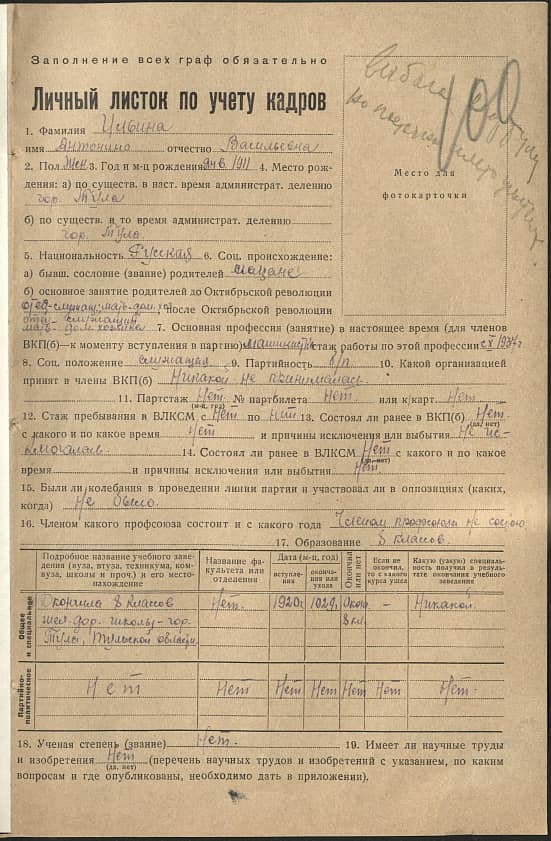 Заполнение всех граф обязательно
Личный листок по учету кадров
100
Место для
фотокарточки
1. Фамилия Ильина
имя Антонина отчество Васильевна
2. Пол Жен 3. Год и м-ц рождения янв. 1911 4. Место рож-
дения: а) по существ. в наст. время администрат. делению
гор. Тула
б) по существ. в то время администрат. делению
гор. Тула.
5. Национальность Русская 6. Соц. происхождение:
а) бывш. сословие (звание) родителей мещане
б) основное занятие родителей до Октябрьской революции
отец-служащ. мать-дом.хоз. после Октябрьской революции
отец служащий
мать дом. хозяйка 7. Основная профессия (занятие) в настоящее время (для членов
ВКП(б)—к моменту вступления в партию) машинистка стаж работы по этой профессии с X 1937г
8. Соц. положение служащая 9. Партийность б/п 10. Какой организацией
принят в члены ВКП(б) Никакой не принималась
11. Партстаж Нет. № партбилета Нет. или к/карт. Нет.
(м-ц, год)
12. Стаж пребывания в ВЛКСМ с Нет по Нет 13. Состоял ли ранее в ВКП(б) Нет.
(да, нет)
с какого и по какое время Нет и причины исключения или выбытия Не ис-
ключалась. 14. Состоял ли ранее в ВЛКСМ Нет с какого и по какое
(да, нет)
время и причины исключения или выбытия Нет
15. Были ли колебания в проведении линии партии и участвовал ли в оппозициях (каких,
когда) Не было.
16. Членом какого профсоюза состоит и с какого года Членом профсоюза не состою
17. Образование 8 классов.
Подробное название учебного заве-
дения (вуза, втуза, техникума, ком-
вуза, школы и проч.) и его место-
нахождение
Название фа-
культета или
отделения
Дата (м-ц, год)
вступле-
ния
оконча-
ния или
ухода
Окончил
или нет
Если не
окончил,
то с какого
курса ушел
Какую (узкую) специаль-
ность получил в резуль-
тате окончания учебного
заведения
Общее
и специальное
Окончила 8 классов Нет. 1920г. 1929г. Окон. – Никакой.
жел. дор. школы-гор. 8 кл.
Тулы, Тульской области.
Партийно-
политическое
Нет Нет Нет Нет Нет Нет Нет.
18. Ученая степень (звание) Нет. 19. Имеет ли научные труды
и изобретения Нет (перечень научных трудов и изобретений с указанием, по каким
(да, нет)
вопросам и где опубликованы, необходимо дать в приложении).